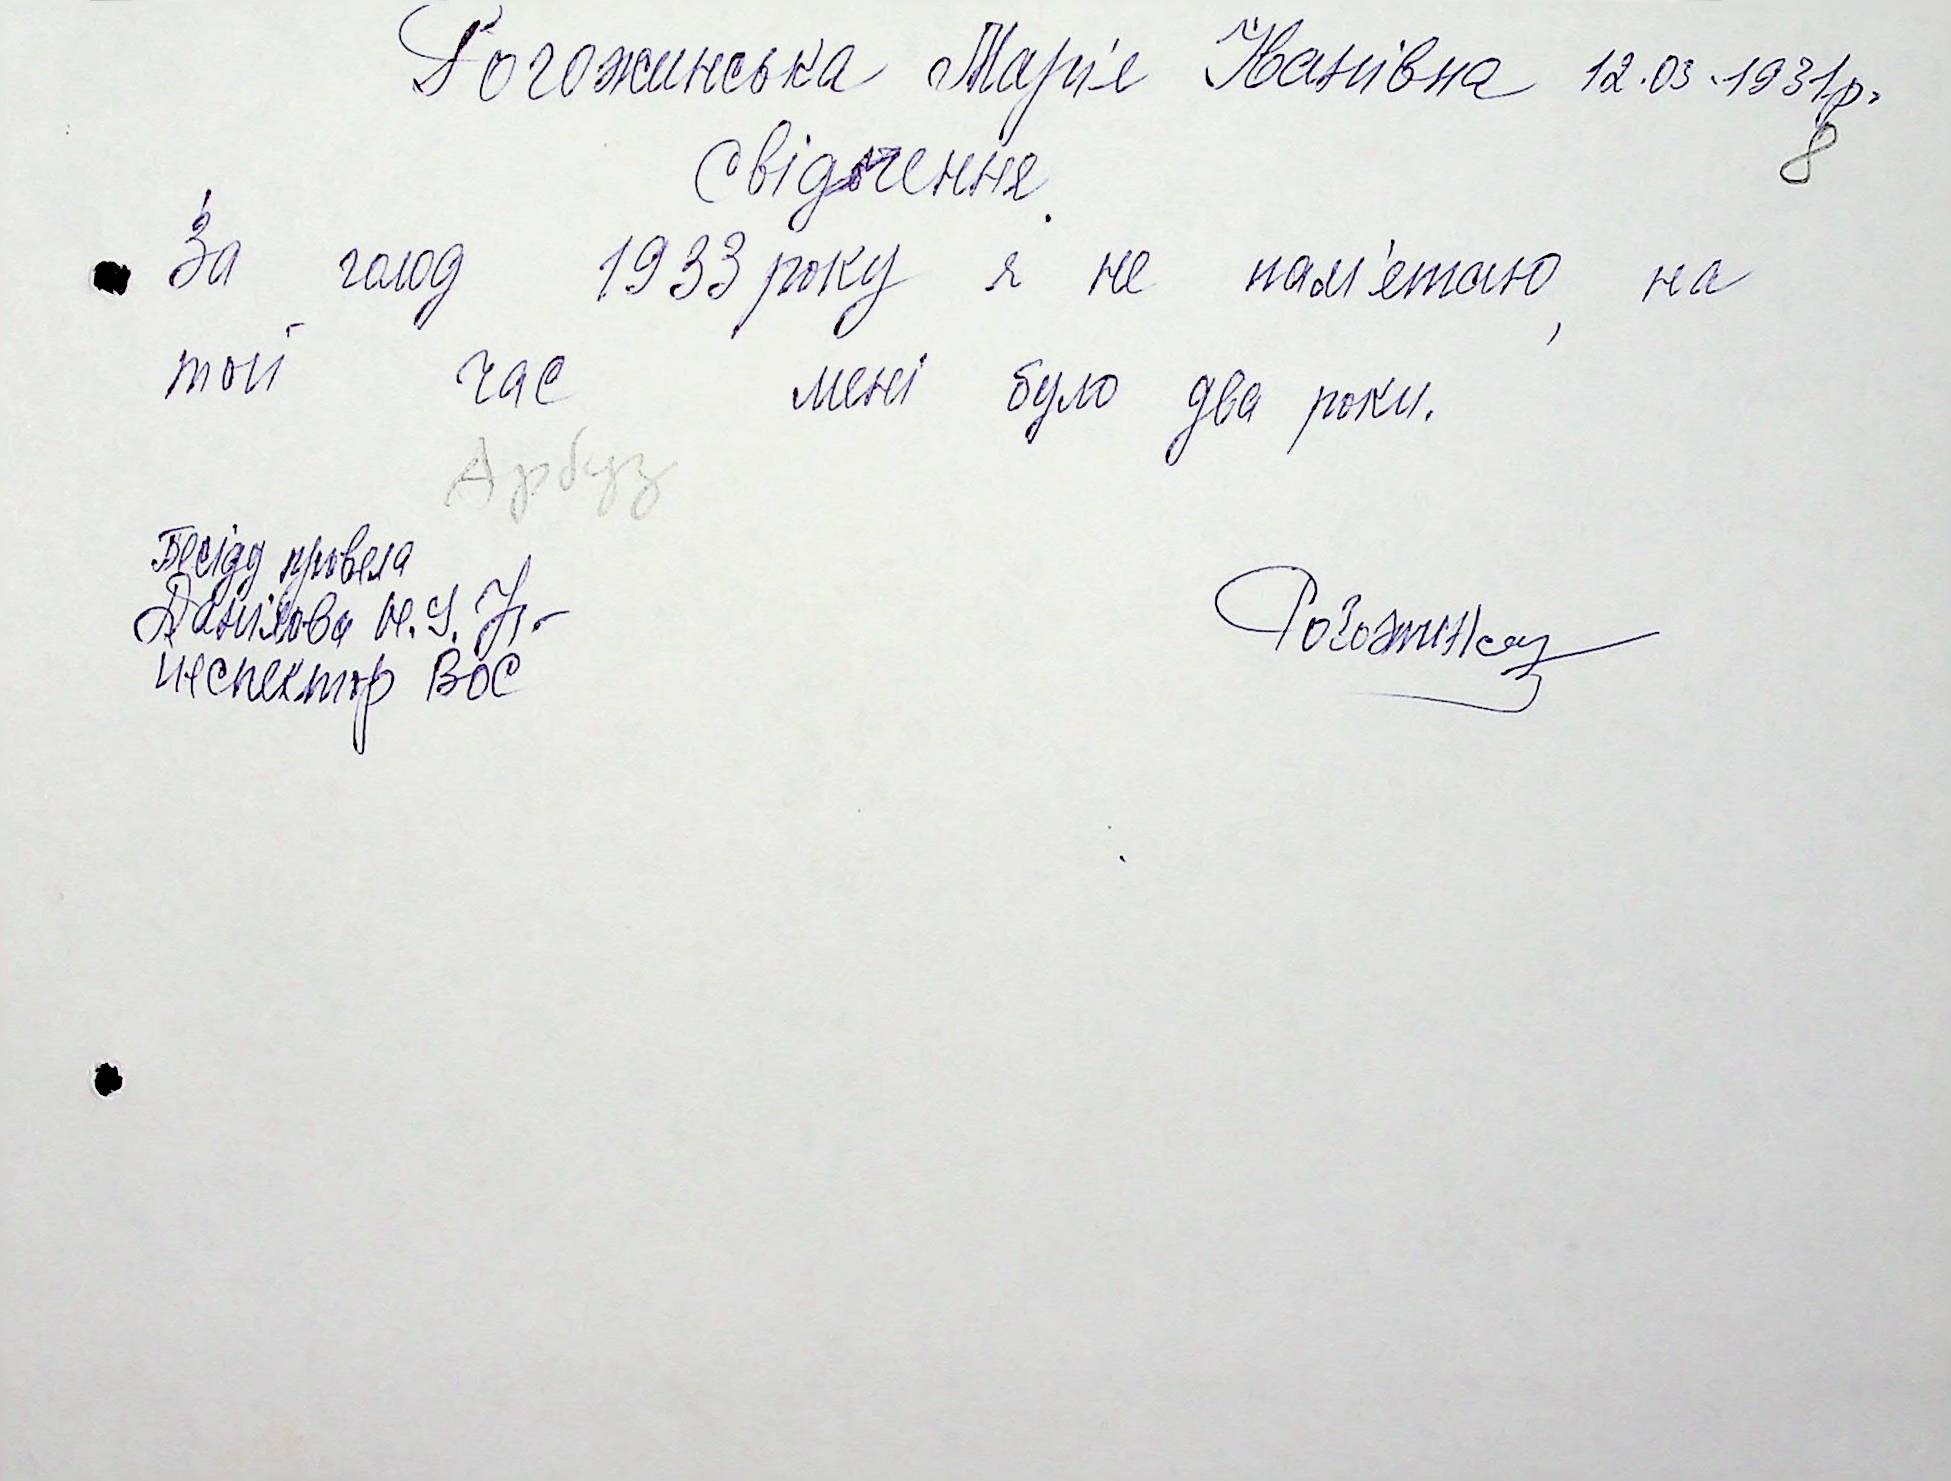 Рогожинська Марія Іванівна 12.03.1931р.
8
Свідчення.
За голод 1933 року я не пам'ятаю, на
той час мені було два роки.
Арбуз
Бесіду провела
Данілова Н.І.
інспектор ВОС
Рогожинська